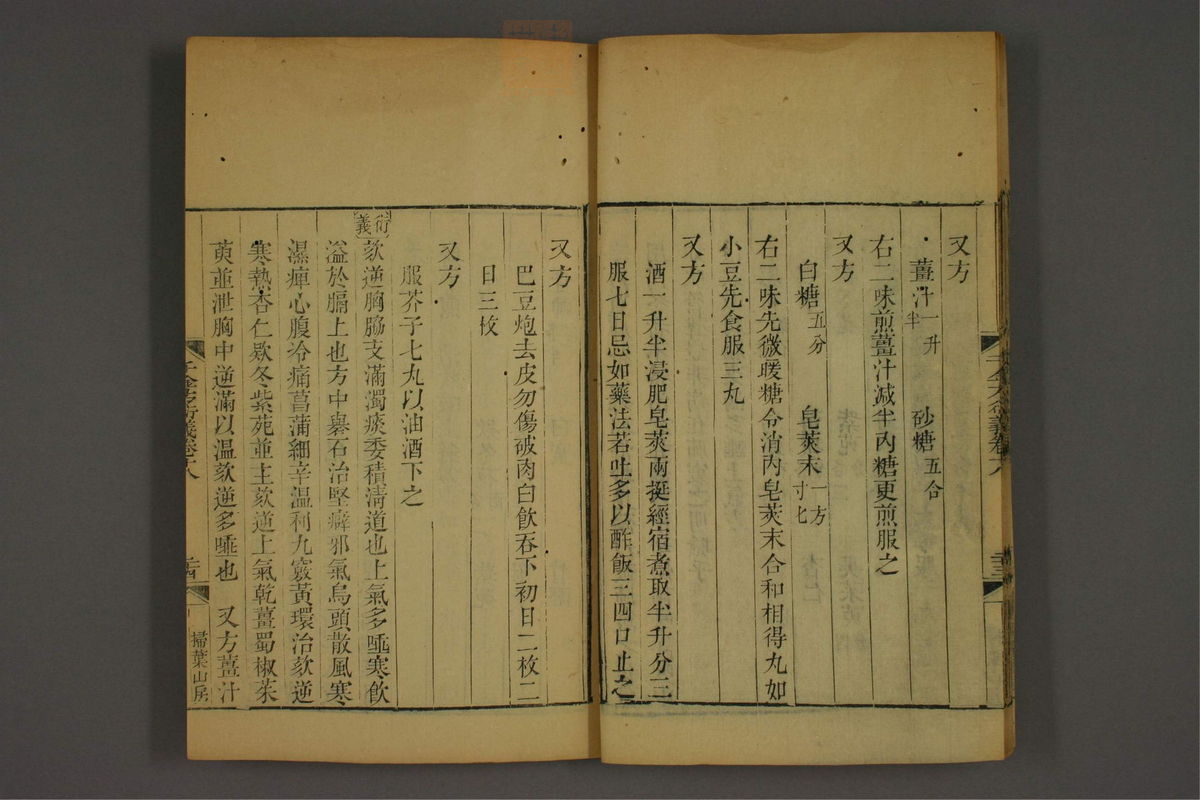 又方
薑汁一升半 砂糖五合
右二味煎薑汁減半內糖更煎服之
又方
白糖五分 皂莢末一方寸匕
右二味先微暖糖令消內皂莢末合和相得丸如
小豆先食服三丸
又方
酒一升半浸肥皂莢兩挺經宿煮取半升分三
服七日忌如藥法若吐多以酢飯三四口止之
又方
巴豆炮去皮勿傷破肉白飲吞下初日二枚二
日三枚
又方
服芥子七丸以油酒下之
衍義欬逆胸脇支滿濁痰委積清道也上氣多唾寒飲
溢於膈上也方中礜石治堅癖邪氣烏頭散風寒
濕痺心腹冷痛菖蒲細辛溫利九竅黃環治欬逆
寒熱杏仁欵冬紫菀並主欬逆上氣乾薑蜀椒茱
萸並泄胸中逆滿以溫欬逆多唾也 又方薑汁
千金方衍義卷十八
二十四
掃葉山房